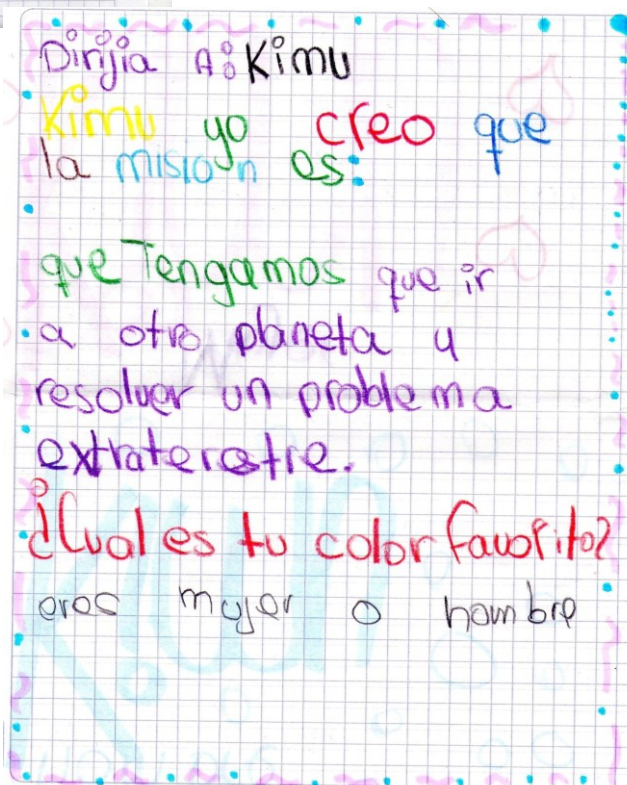 Dirijia A: Kimu
Kimu yo creo que
la mision es:
que Tengamos que ir
a otro planeta y
resolver un problema
extraterestre.
¿Cual es tu color favorito?
eres mujer o hombre